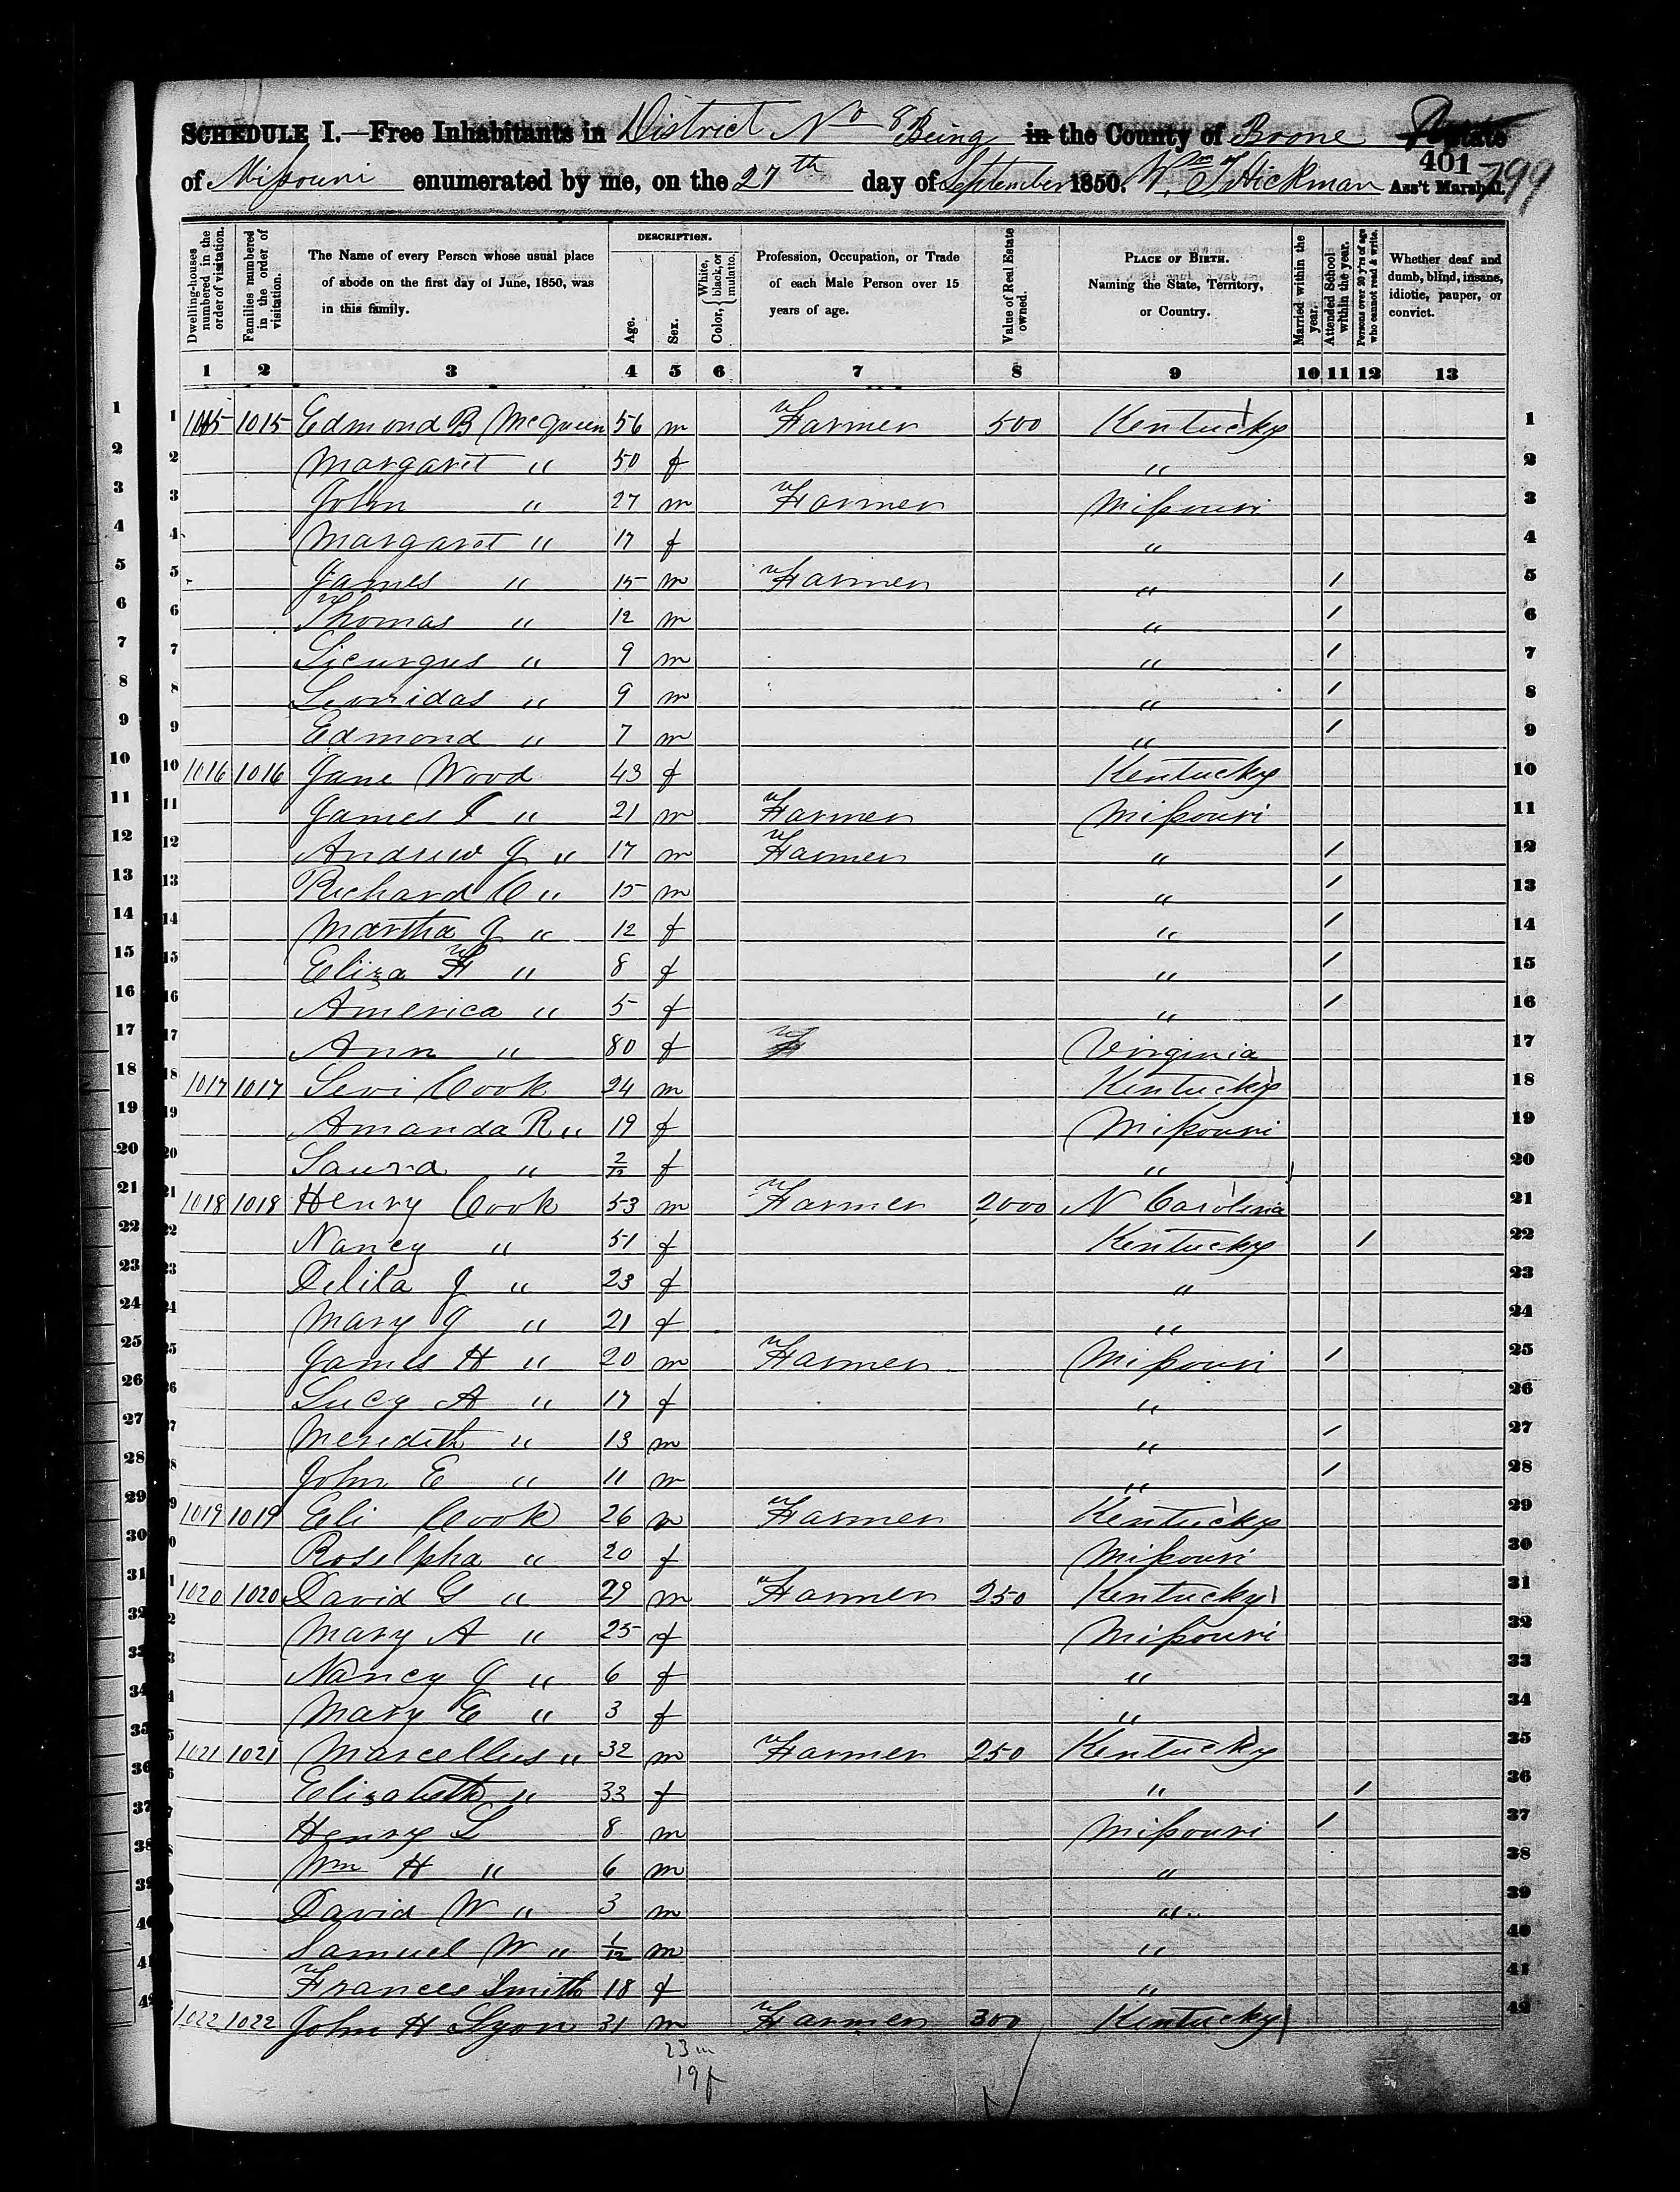 SCHEDULE I.—Free Inhabitants in District No 8 Being in the County of Boone State
of Missouri enumerated by me, on the 27th day of September 1850. Wm T Hickman Ass't Marshal.
401 799
Dwelling-houses numbered in the order of visitation. Families numbered in the order of visitation. The Name of every Person whose usual place of abode on the first day of June, 1850, was in this family. DESCRIPTION. Age. Sex. Color, { White, black, or mulatto. Profession, Occupation, or Trade of each Male Person over 15 years of age. Value of Real Estate owned. PLACE OF BIRTH. Naming the State, Territory, or Country. Married within the year. Attended School within the year. Persons over 20 y'rs of age who cannot read & write. Whether deaf and dumb, blind, insane, idiotic, pauper, or convict.
1 2 3 4 5 6 7 8 9 10 11 12 13
1 1015 1015 Edmond B McQueen 56 m Farmer 500 Kentucky 1
2 Margaret " 50 f " 2
3 John " 27 m Farmer Missouri 3
4 Margaret " 17 f " 4
5 James " 15 m Farmer " / 5
6 Thomas " 12 m " / 6
7 Licurgus " 9 m " / 7
8 Leonidas " 9 m " / 8
9 Edmond " 7 m " / 9
10 1016 1016 Jane Wood 43 f Kentucky 10
11 James T " 21 m Farmer Missouri 11
12 Andrew J " 17 m Farmer " / 12
13 Richard C " 15 m " / 13
14 Martha J " 12 f " / 14
15 Eliza F " 8 f " / 15
16 America " 5 f " / 16
17 Ann " 80 f Virginia 17
18 1017 1017 Levi Cook 24 m Kentucky 18
19 Amanda R " 19 f Missouri 19
20 Laura " 2/12 f " 20
21 1018 1018 Henry Cook 53 m Farmer 2000 N Carolina 21
22 Nancy " 51 f Kentucky / 22
23 Delila J " 23 f " 23
24 Mary J " 21 f " 24
25 James H " 20 m Farmer Missouri / 25
26 Lucy A " 17 f " 26
27 Meredith " 13 m " / 27
28 John E " 11 m " / 28
29 1019 1019 Eli Cook 26 m Farmer Kentucky 29
30 Roselpha " 20 f Missouri 30
31 1020 1020 David G " 29 m Farmer 250 Kentucky 31
32 Mary A " 25 f Missouri 32
33 Nancy J " 6 f " 33
34 Mary E " 3 f " 34
35 1021 1021 Marcellus " 32 m Farmer 250 Kentucky 35
36 Elizabeth " 33 f " / 36
37 Henry L 8 m Missouri / 37
38 Wm H " 6 m " 38
39 David W " 3 m " 39
40 Samuel W " 1/12 m " 40
41 Frances Smith 18 f " 41
42 1022 1022 John H Lyon 31 m Farmer 300 Kentucky 42
23 m
19 f